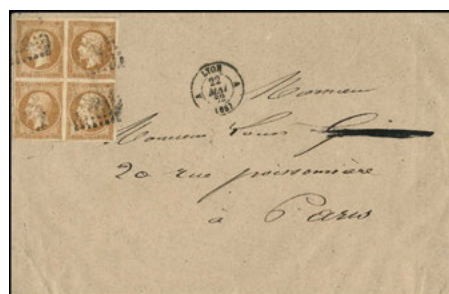 LYON
22
MAI
(68)
A A
Monsieur
Monsieur Louis
20 rue poissonnière
à Paris